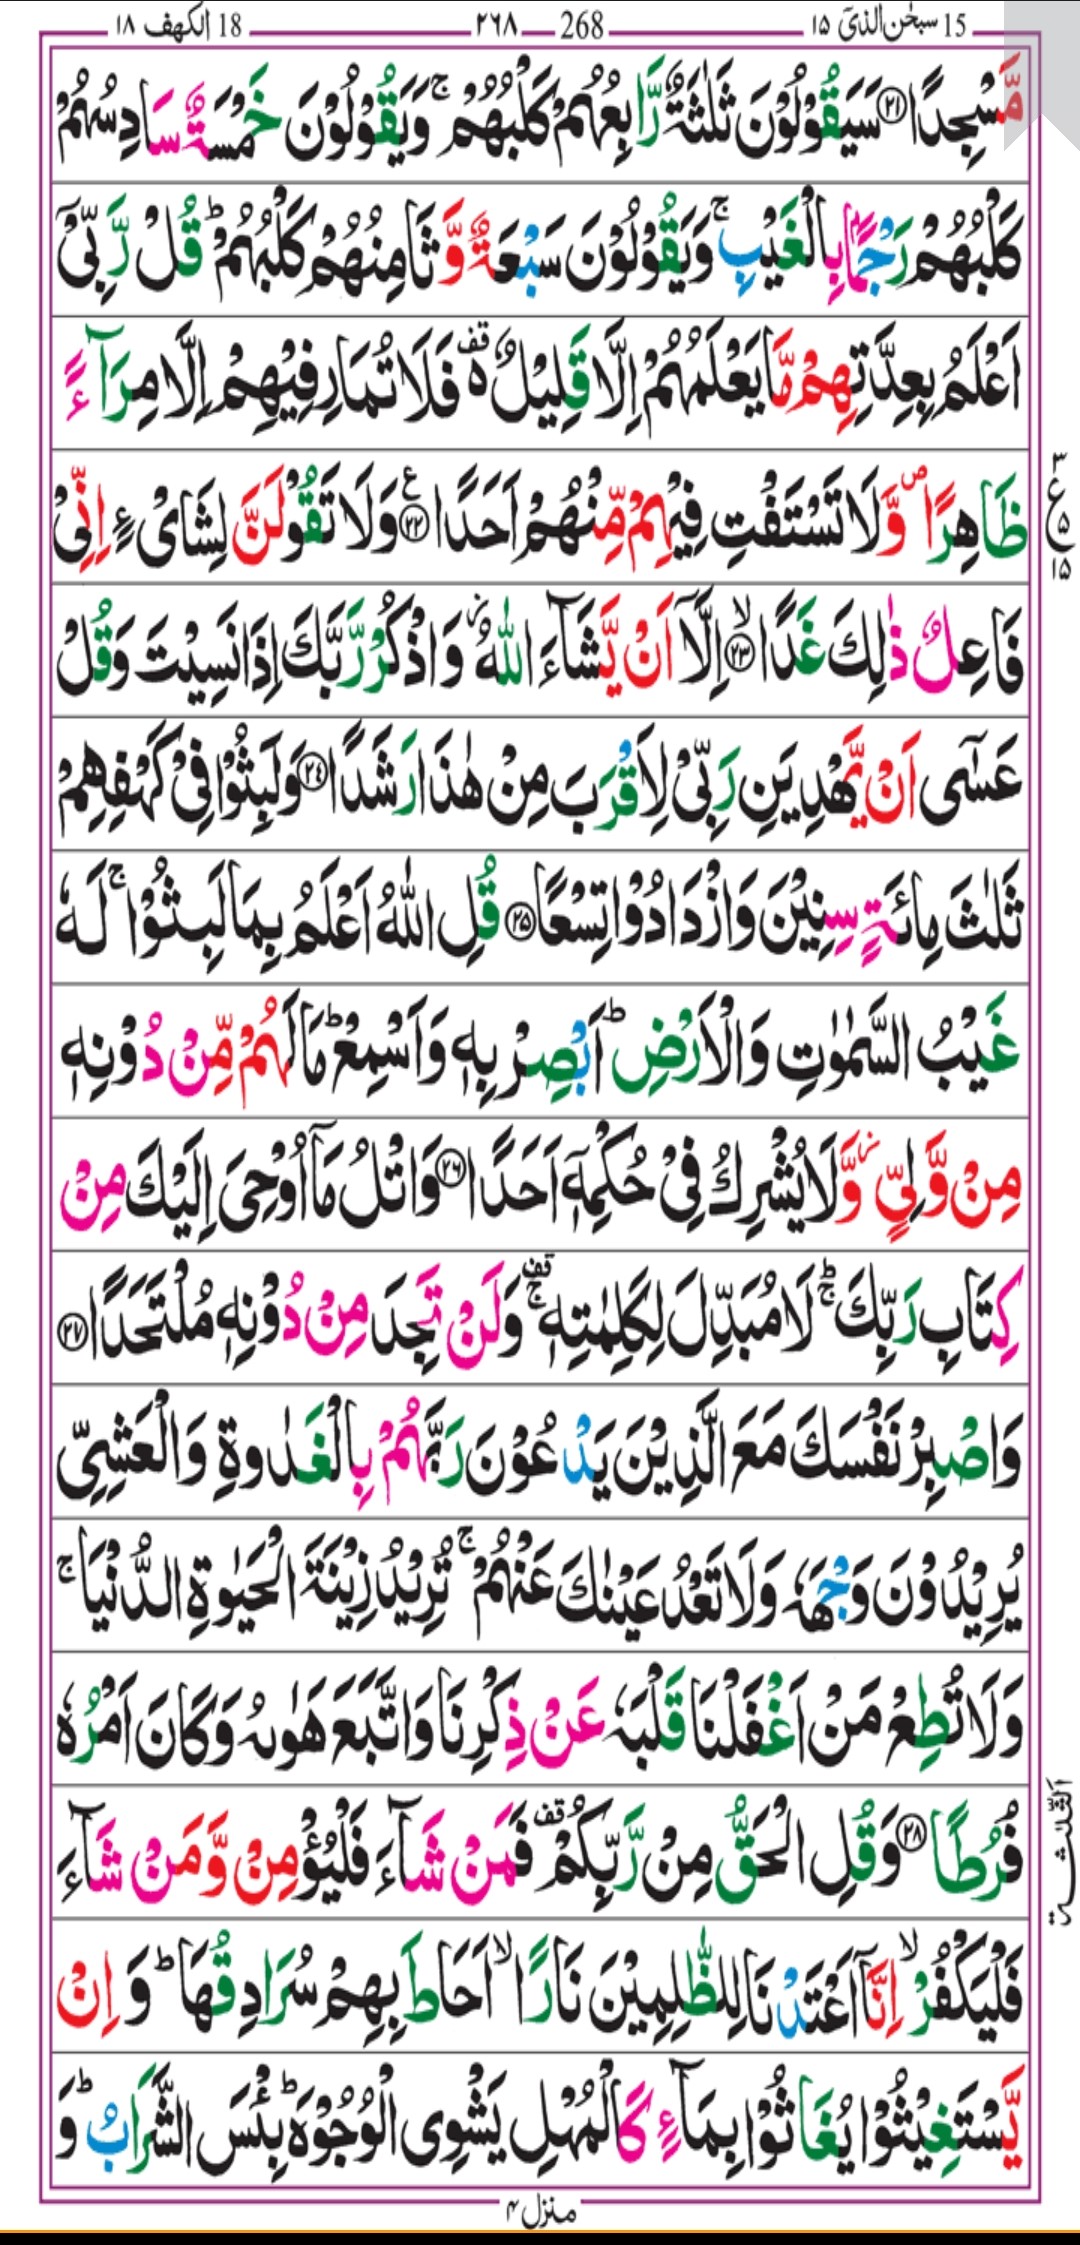 15 سبحٰن الذیۤ ۱۵ 268 ۲٦۸ 18 الكهف ۱۸
مَّسْجِدًا ۲۱ سَيَقُوْلُوْنَ ثَلٰثَةٌ رَّابِعُهُمْ كَلْبُهُمْ ۚ وَيَقُوْلُوْنَ خَمْسَةٌ سَادِسُهُمْ
كَلْبُهُمْ رَجْمًۢا بِالْغَيْبِ ۚ وَيَقُوْلُوْنَ سَبْعَةٌ وَّثَامِنُهُمْ كَلْبُهُمْ ؕ قُلْ رَّبِّىْۤ
اَعْلَمُ بِعِدَّتِهِمْ مَّا يَعْلَمُهُمْ اِلَّا قَلِيْلٌ ۫ قف فَلَا تُمَارِ فِيْهِمْ اِلَّا مِرَآءً
ظَاهِرًا ۪ وَّلَا تَسْتَفْتِ فِيْهِمْ مِّنْهُمْ اَحَدًا ۲۲ ع وَلَا تَقُوْلَنَّ لِشَاىْءٍ اِنِّىْ
۳ ع ۵ ۱۵
فَاعِلٌ ذٰلِكَ غَدًا ۲۳ ۙ اِلَّاۤ اَنْ يَّشَآءَ اللّٰهُ ۫ وَاذْكُرْ رَّبَّكَ اِذَا نَسِيْتَ وَقُلْ
عَسٰٓى اَنْ يَّهْدِيَنِ رَبِّىْ لِاَقْرَبَ مِنْ هٰذَا رَشَدًا ۲٤ وَلَبِثُوْا فِىْ كَهْفِهِمْ
ثَلٰثَ مِائَةٍ سِنِيْنَ وَازْدَادُوْا تِسْعًا ۲۵ قُلِ اللّٰهُ اَعْلَمُ بِمَا لَبِثُوْا ۚ لَهٗ
غَيْبُ السَّمٰوٰتِ وَالْاَرْضِ ؕ اَبْصِرْ بِهٖ وَاَسْمِعْ ؕ مَا لَهُمْ مِّنْ دُوْنِهٖ
مِنْ وَّلِىٍّ ۫ وَّلَا يُشْرِكُ فِىْ حُكْمِهٖۤ اَحَدًا ۲٦ وَاتْلُ مَاۤ اُوْحِىَ اِلَيْكَ مِنْ
كِتَابِ رَبِّكَ ؕۚ لَا مُبَدِّلَ لِكَلِمٰتِهٖ ۚ قف وَلَنْ تَجِدَ مِنْ دُوْنِهٖ مُلْتَحَدًا ۲۷
وَاصْبِرْ نَفْسَكَ مَعَ الَّذِيْنَ يَدْعُوْنَ رَبَّهُمْ بِالْغَدٰوةِ وَالْعَشِىِّ
يُرِيْدُوْنَ وَجْهَهٗ وَلَا تَعْدُ عَيْنٰكَ عَنْهُمْ ۚ تُرِيْدُ زِيْنَةَ الْحَيٰوةِ الدُّنْيَا ۚ
وَلَا تُطِعْ مَنْ اَغْفَلْنَا قَلْبَهٗ عَنْ ذِكْرِنَا وَاتَّبَعَ هَوٰىهُ وَكَانَ اَمْرُهٗ
فُرُطًا ۲۸ وَقُلِ الْحَقُّ مِنْ رَّبِّكُمْ قف فَمَنْ شَآءَ فَلْيُؤْمِنْ وَّمَنْ شَآءَ
الثلٰثة
فَلْيَكْفُرْ ۙ اِنَّاۤ اَعْتَدْنَا لِلظّٰلِمِيْنَ نَارًا ۙ اَحَاطَ بِهِمْ سُرَادِقُهَا ؕ وَاِنْ
يَّسْتَغِيْثُوْا يُغَاثُوْا بِمَآءٍ كَالْمُهْلِ يَشْوِى الْوُجُوْهَ ؕ بِئْسَ الشَّرَابُ ؕ وَ
منزل ۴